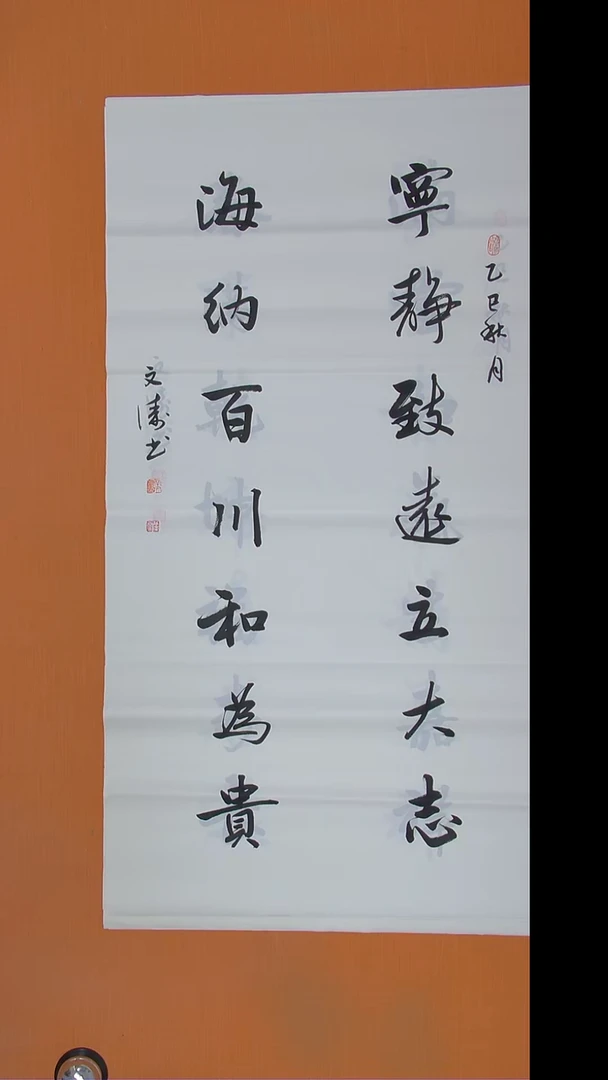 乙巳秋月
寧静致遠立大志
海纳百川和為貴
文涛书